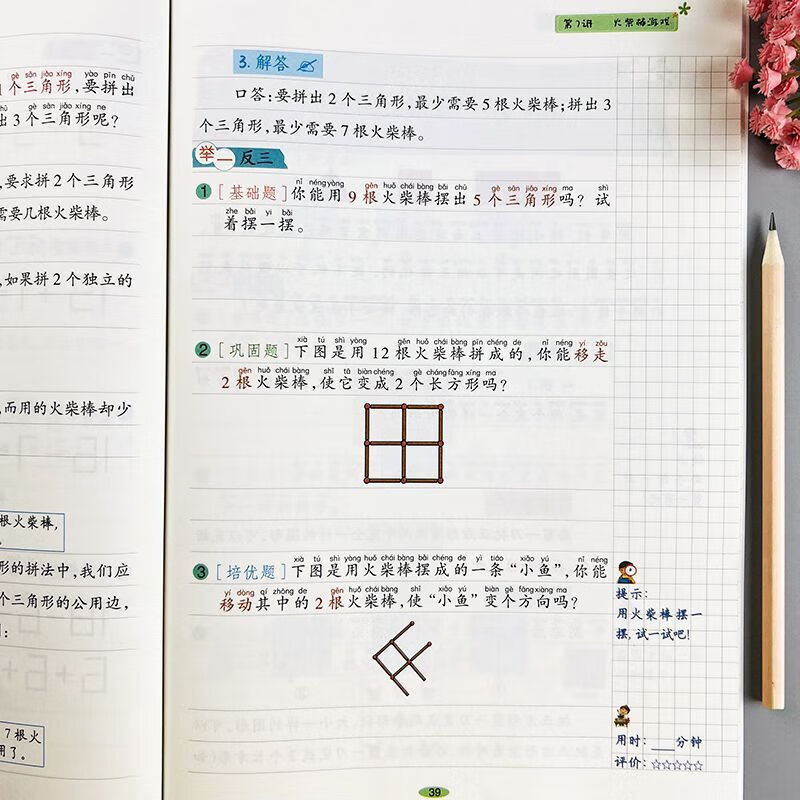 gè sān jiǎo xíng yào pīn chū
个三角形,要拼出
gè sān jiǎo xíng ne
出3个三角形呢?
,要求拼2个三角形
需要几根火柴棒。
,如果拼2个独立的
,而用的火柴棒却少
根火柴棒,
形的拼法中,我们应
个三角形的公用边,
7根火
用了。
第7讲 火柴棒游戏
3.解答
口答:要拼出2个三角形,最少需要5根火柴棒;拼出3
个三角形,最少需要7根火柴棒。
举一反三
nǐ néng yòng gēn huǒ chái bàng bǎi chū gè sān jiǎo xíng ma shì
1 [基础题]你能用9根火柴棒摆出5个三角形吗?试
zhe bǎi yi bǎi
着摆一摆。
xià tú shì yòng gēn huǒ chái bàng pīn chéng de nǐ néng yí zǒu
2 [巩固题]下图是用12根火柴棒拼成的,你能移走
gēn huǒ chái bàng shǐ tā biàn chéng gè cháng fāng xíng ma
2根火柴棒,使它变成2个长方形吗?
xià tú shì yòng huǒ chái bàng bǎi chéng de yì tiáo xiǎo yú nǐ néng
3 [培优题]下图是用火柴棒摆成的一条“小鱼”,你能
yí dòng qí zhōng de gēn huǒ chái bàng shǐ xiǎo yú biàn gè fāng xiàng ma
移动其中的2根火柴棒,使“小鱼”变个方向吗?
提示:
用火柴棒摆一
摆,试一试吧!
用时:___分钟
评价:☆☆☆☆☆
39